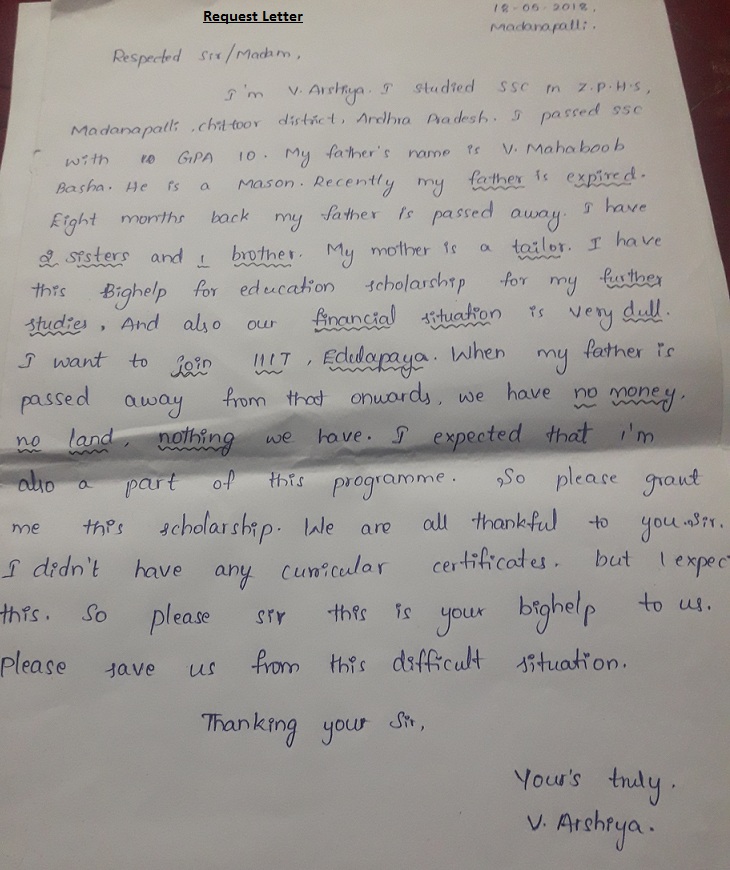 Request Letter
18-05-2018,
Madanapalli.
Respected Sir/Madam,
I'm V. Arshiya. I studied SSC in Z.P.H.S,
Madanapalli, chittoor district, Andhra Pradesh. I passed SSC
with GPA 10. My father's name is V. Mahaboob
Basha. He is a Mason. Recently my father is expired.
Eight months back my father is passed away. I have
2 sisters and 1 brother. My mother is a tailor. I have
this Bighelp for education scholarship for my further
studies, And also our financial situation is very dull.
I want to join IIIT, Edulapaya. When my father is
passed away from that onwards, we have no money,
no land, nothing we have. I expected that i'm
also a part of this programme. So please grant
me this scholarship. We are all thankful to you sir.
I didn't have any curricular certificates. but I expec
this. So please sir this is your bighelp to us.
Please save us from this difficult situation.
Thanking your Sir,
Your's truly.
V. Arshiya.